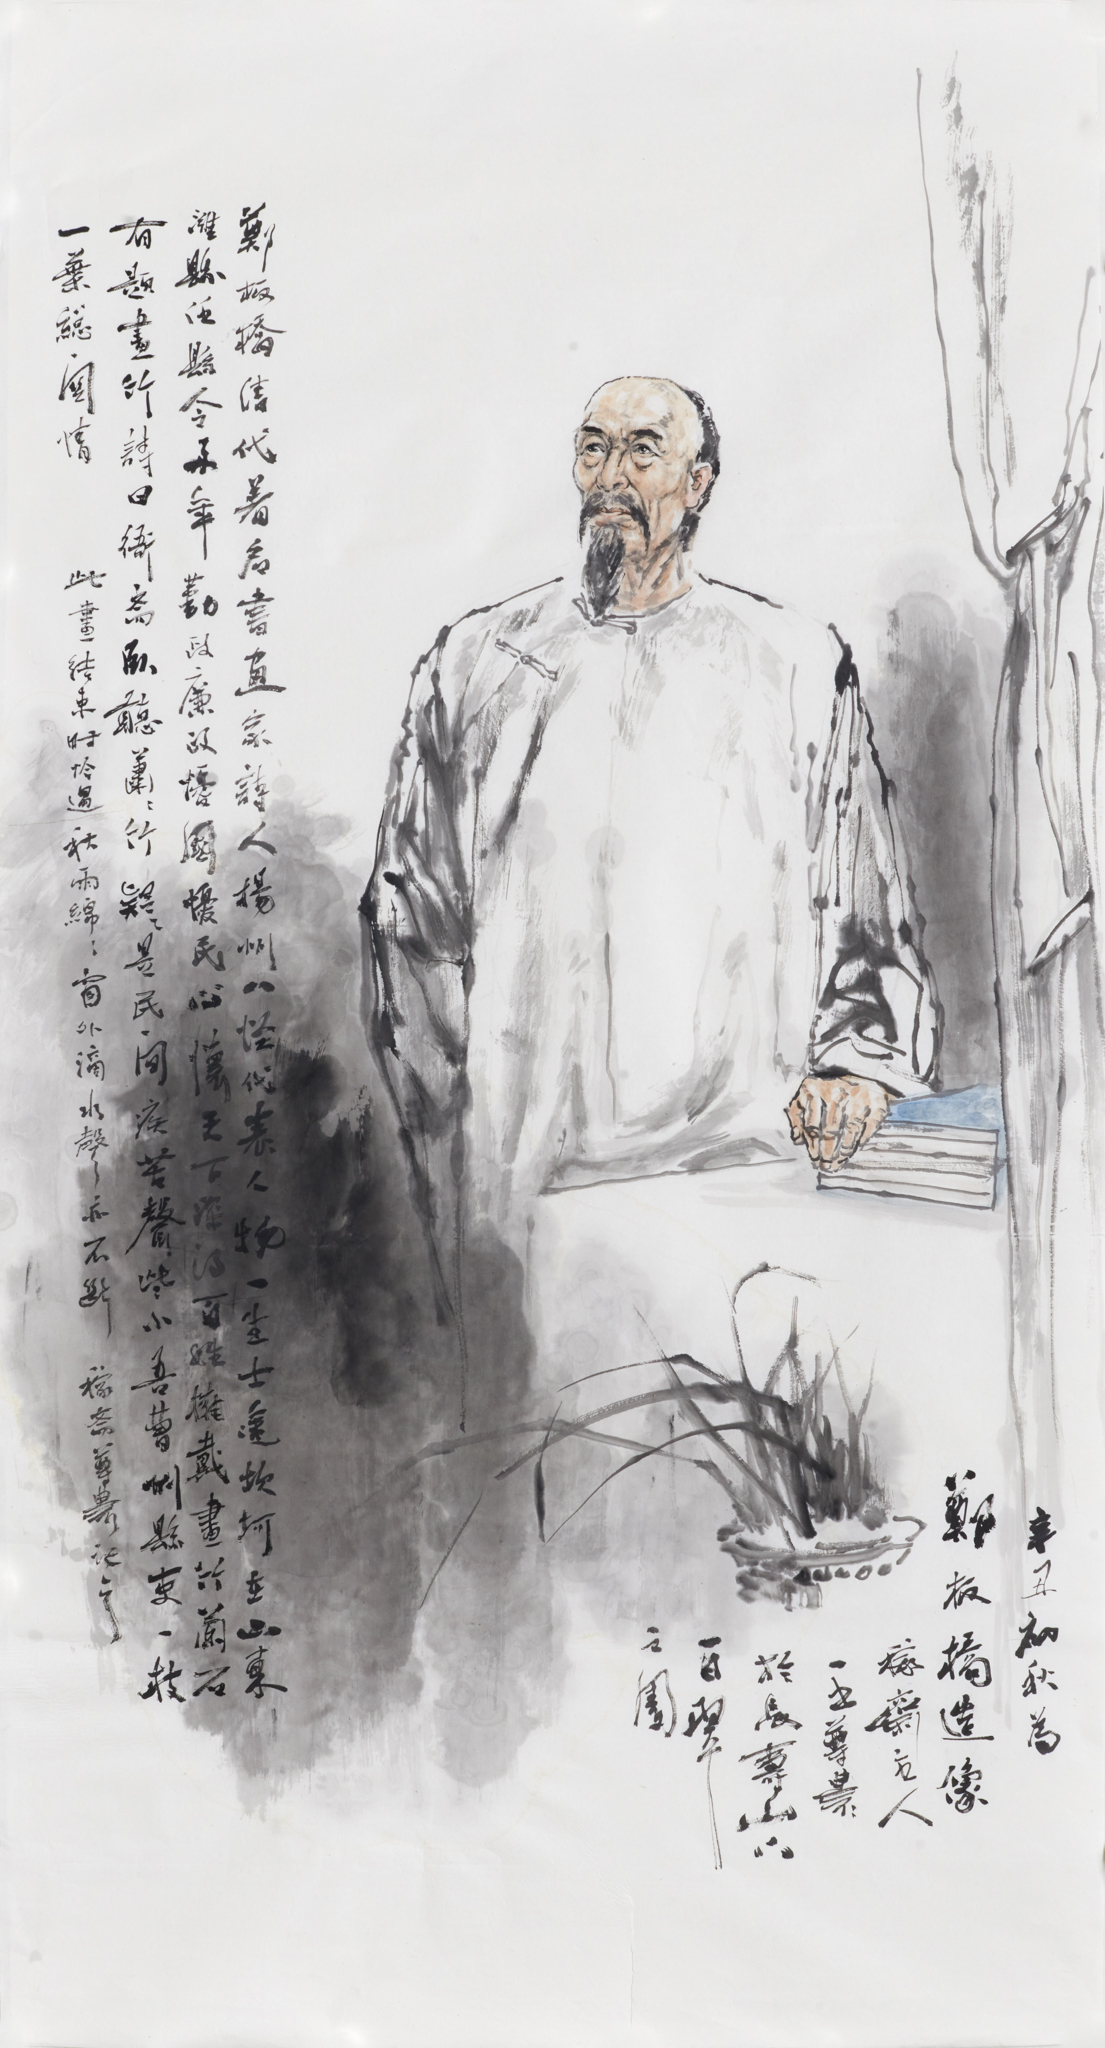 鄭板橋清代著名書画家詩人楊州八怪代表人物一生士途坎坷在山東
濰縣任縣令 年勤政廉政憂國憂民心懷天下深得百姓擁戴畫竹蘭石
有題畫竹詩曰衙斋臥聽蕭〻竹疑是民間疾苦聲些小吾曹州縣吏一枝
一葉總関情
此畫结束时恰遇秋雨綿〻窗外滴水聲聲亦不斷
稼斋尊農记之
辛丑初秋為
鄭板橋造像
稼齋主人
王尊農
於長壽山下
百翠
之園